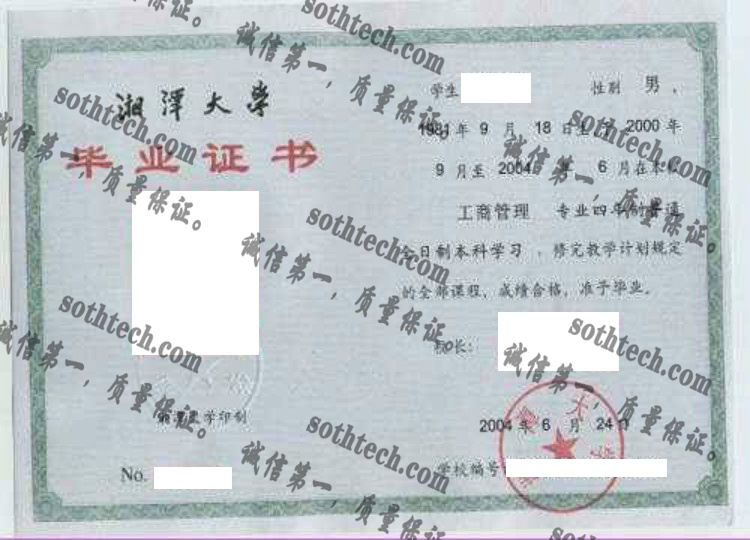 湘潭大学
毕业证书
湘潭大学印制
No.
学生 性别 男，
1981年9月18日生于2000年
9月至2004年6月在本校
工商管理 专业四年制普通
全日制本科学习，修完教学计划规定
的全部课程，成绩合格，准予毕业。
校长：
2004年6月24日
学校编号
sothtech.com
诚信第一，质量保证。
sothtech.com
诚信第一，质量保证。
sothtech.com
诚信第一，质量保证。
sothtech.com
诚信第一，质量保证。
sothtech.com
诚信第一，质量保证。
sothtech.com
诚信第一，质量保证。
sothtech.com
诚信第一，质量保证。
sothtech.com
诚信第一，质量保证。